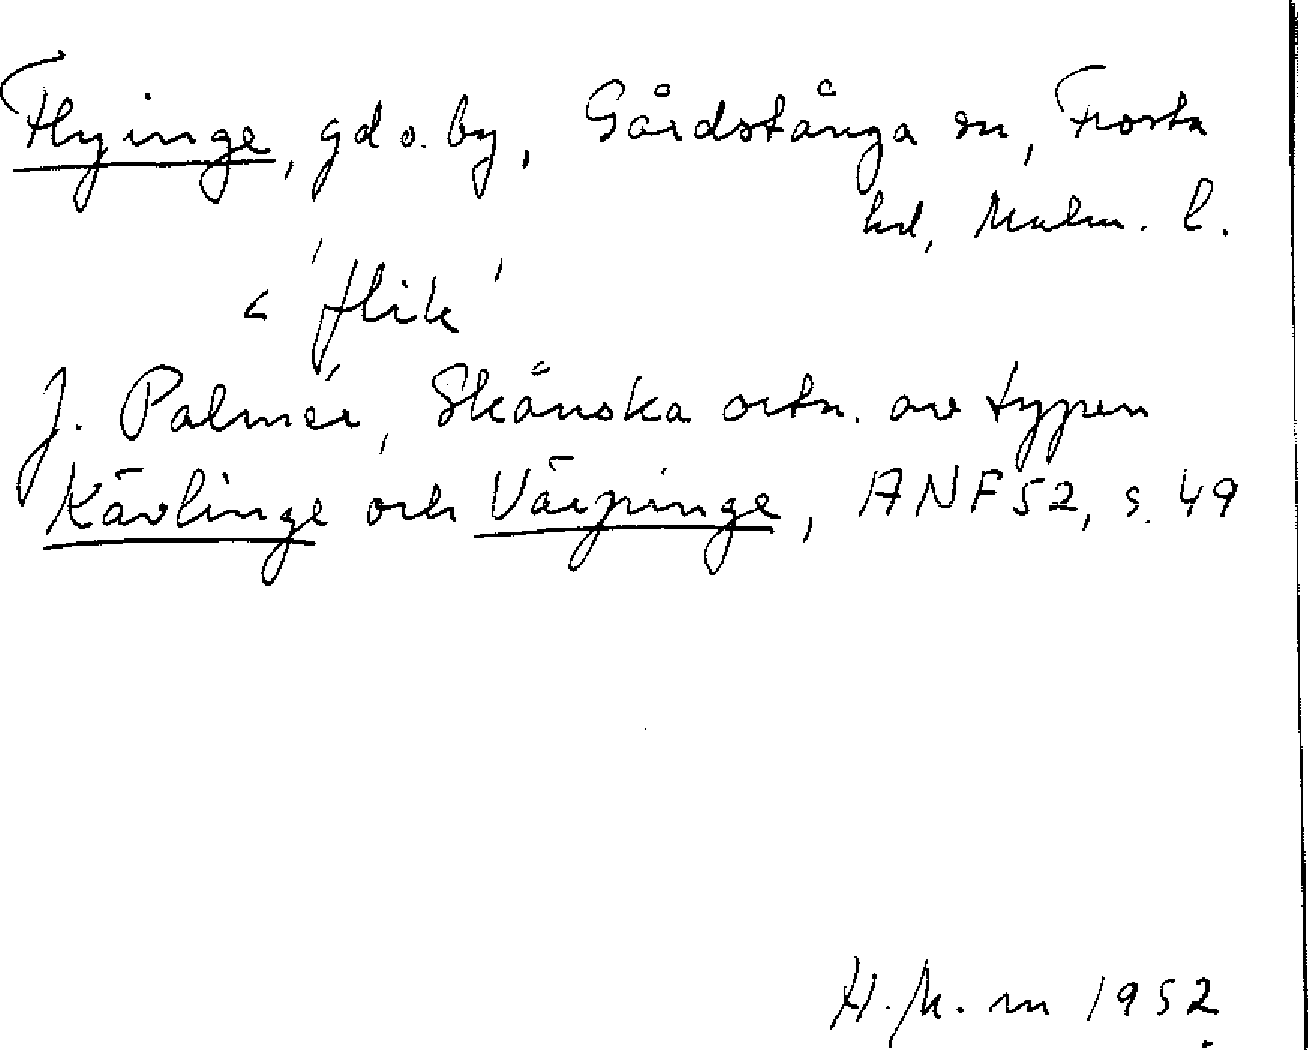 Flyinge, gd o. by, Gårdstånga sn, Frosta
hd, Malm. l.
< 'flik'
J. Palmér, Skånska ortn. av typen
Kävlinge och Värpinge, ANF 52, s. 49
1952